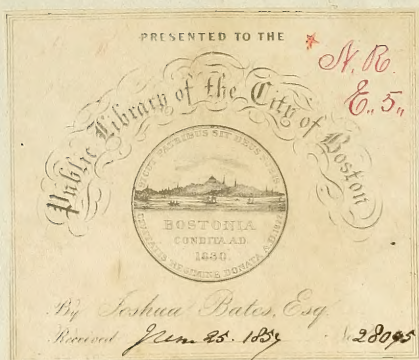 PRESENTED TO THE
N. R.
E. 5.
Public Library of the City of Boston
SICUT PATRIBUS SIT DEUS NOBIS
BOSTONIA
CONDITA A.D.
1630.
CIVITATIS REGIMINE DONATA A.D. 1822
By Joshua Bates, Esq.
Received 25. 185
No 28095